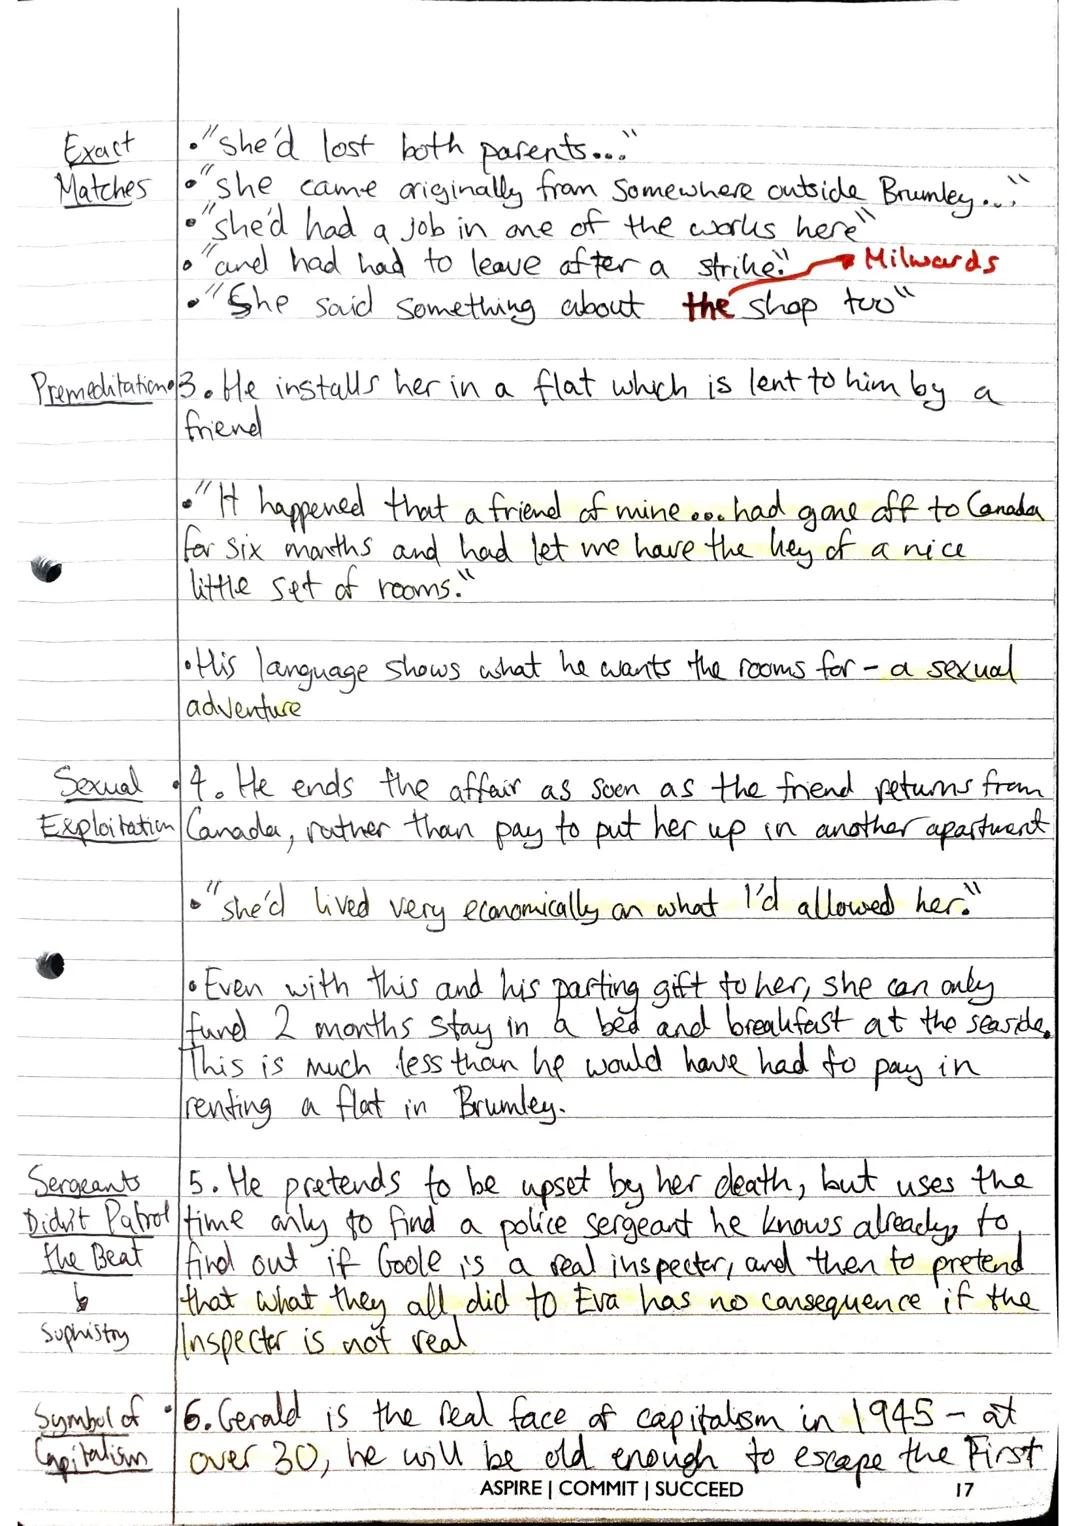 Exact
Matches
• "she'd lost both parents..."
• "she came originally from somewhere outside Brumley..."
• "she'd had a job in one of the works here"
• "and had had to leave after a strike." → Milwards
• "She said something about the shop too"
Premeditation • 3. He installs her in a flat which is lent to him by a
friend
• "It happened that a friend of mine... had gone off to Canada
for six months and had let me have the key of a nice
little set of rooms."
• His language shows what he wants the rooms for - a sexual
adventure
Sexual
Exploitation
• 4. He ends the affair as soon as the friend returns from
Canada, rather than pay to put her up in another apartment
• "she'd lived very economically on what I'd allowed her."
• Even with this and his parting gift to her, she can only
fund 2 months stay in a bed and breakfast at the seaside.
This is much less than he would have had to pay in
renting a flat in Brumley.
Sergeants
Didn't Patrol
the Beat
↳
Sophistry
5. He pretends to be upset by her death, but uses the
time only to find a police sergeant he knows already, to
find out if Goole is a real inspector, and then to pretend
that what they all did to Eva has no consequence if the
Inspector is not real
Symbol of
Capitalism
• 6. Gerald is the real face of capitalism in 1945 - at
over 30, he will be old enough to escape the First
ASPIRE | COMMIT | SUCCEED
17